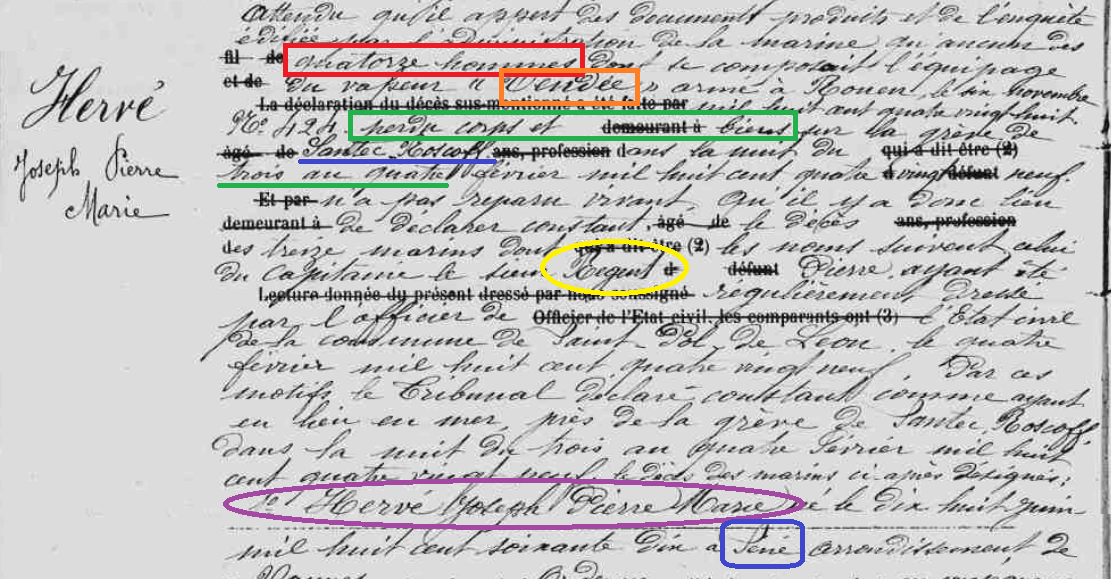 attendu qu'il appert des documents produits et de l'enquête
édifiée par l'administration de la marine qu'aucun des
fil de quatorze hommes dont se composait l'équipage
et de du vapeur " Vendée " armé à Rouen, le six novembre
La déclaration du décès sus-mentionné a été faite par mil huit cent quatre vingt huit
Nº 424. perdu corps et demeurant à biens sur la grève de
âgé de Santec Roscoff ans, profession dans la nuit du qui a dit être (2)
trois au quatre février mil huit cent quatre vingt défunt neuf.
Et par n'a pas reparu vivant. Qu'il y a donc lieu
demeurant à de déclarer constant, âgé de le décès ans, profession
des treize marins dont qui a dit être (2) les noms suivent celui
du capitaine le sieur Regent d défunt Pierre, ayant été
Lecture donnée du présent dressé par nous soussigné régulièrement dressé
par l'officier de Officier de l'Etat civil, les comparants ont (3) l'Etat civil
de la commune de Saint Pol de Léon, le quatre
février mil huit cent quatre vingt neuf. Par ces
motifs, le Tribunal déclare constant comme ayant
eu lieu en mer, près de la grève de Santec, Roscoff,
dans la nuit du trois au quatre février mil huit
cent quatre vingt neuf le décès des marins ci après désignés:
1º Hervé Joseph Pierre Marie né le dix huit juin
mil huit cent soixante dix à Séné arrondissement de
Vannes
Hervé
Joseph Pierre
Marie